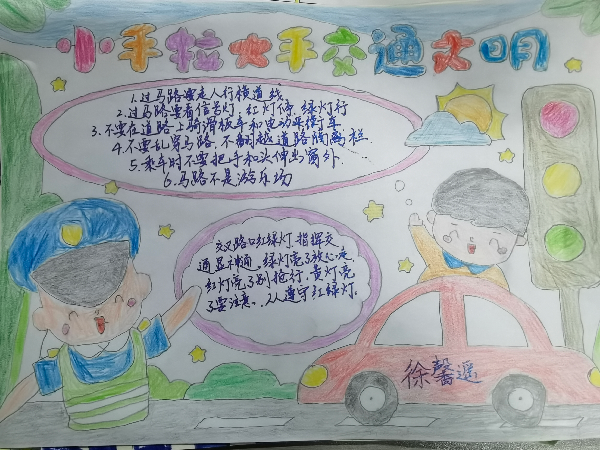 小手拉大手交通文明
1.过马路要走人行横道线
2.过马路要看信号灯,红灯停,绿灯行
3.不要在道路上骑滑板车和电动平衡车
4.不要乱穿马路,不翻越道路隔离栏
5.乘车时不要把手和头伸出窗外
6.马路不是游乐场
交叉路口红绿灯,指挥交
通显神通,绿灯亮了放心走
红灯亮了别抢行,黄灯亮
了要注意,人人遵守红绿灯.
徐馨遥